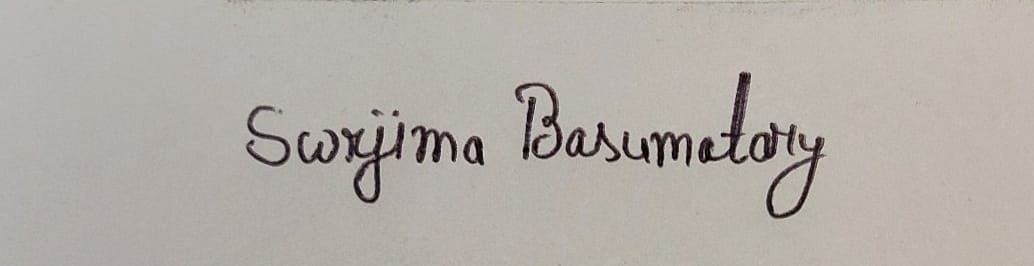 Sworjima Basumatary